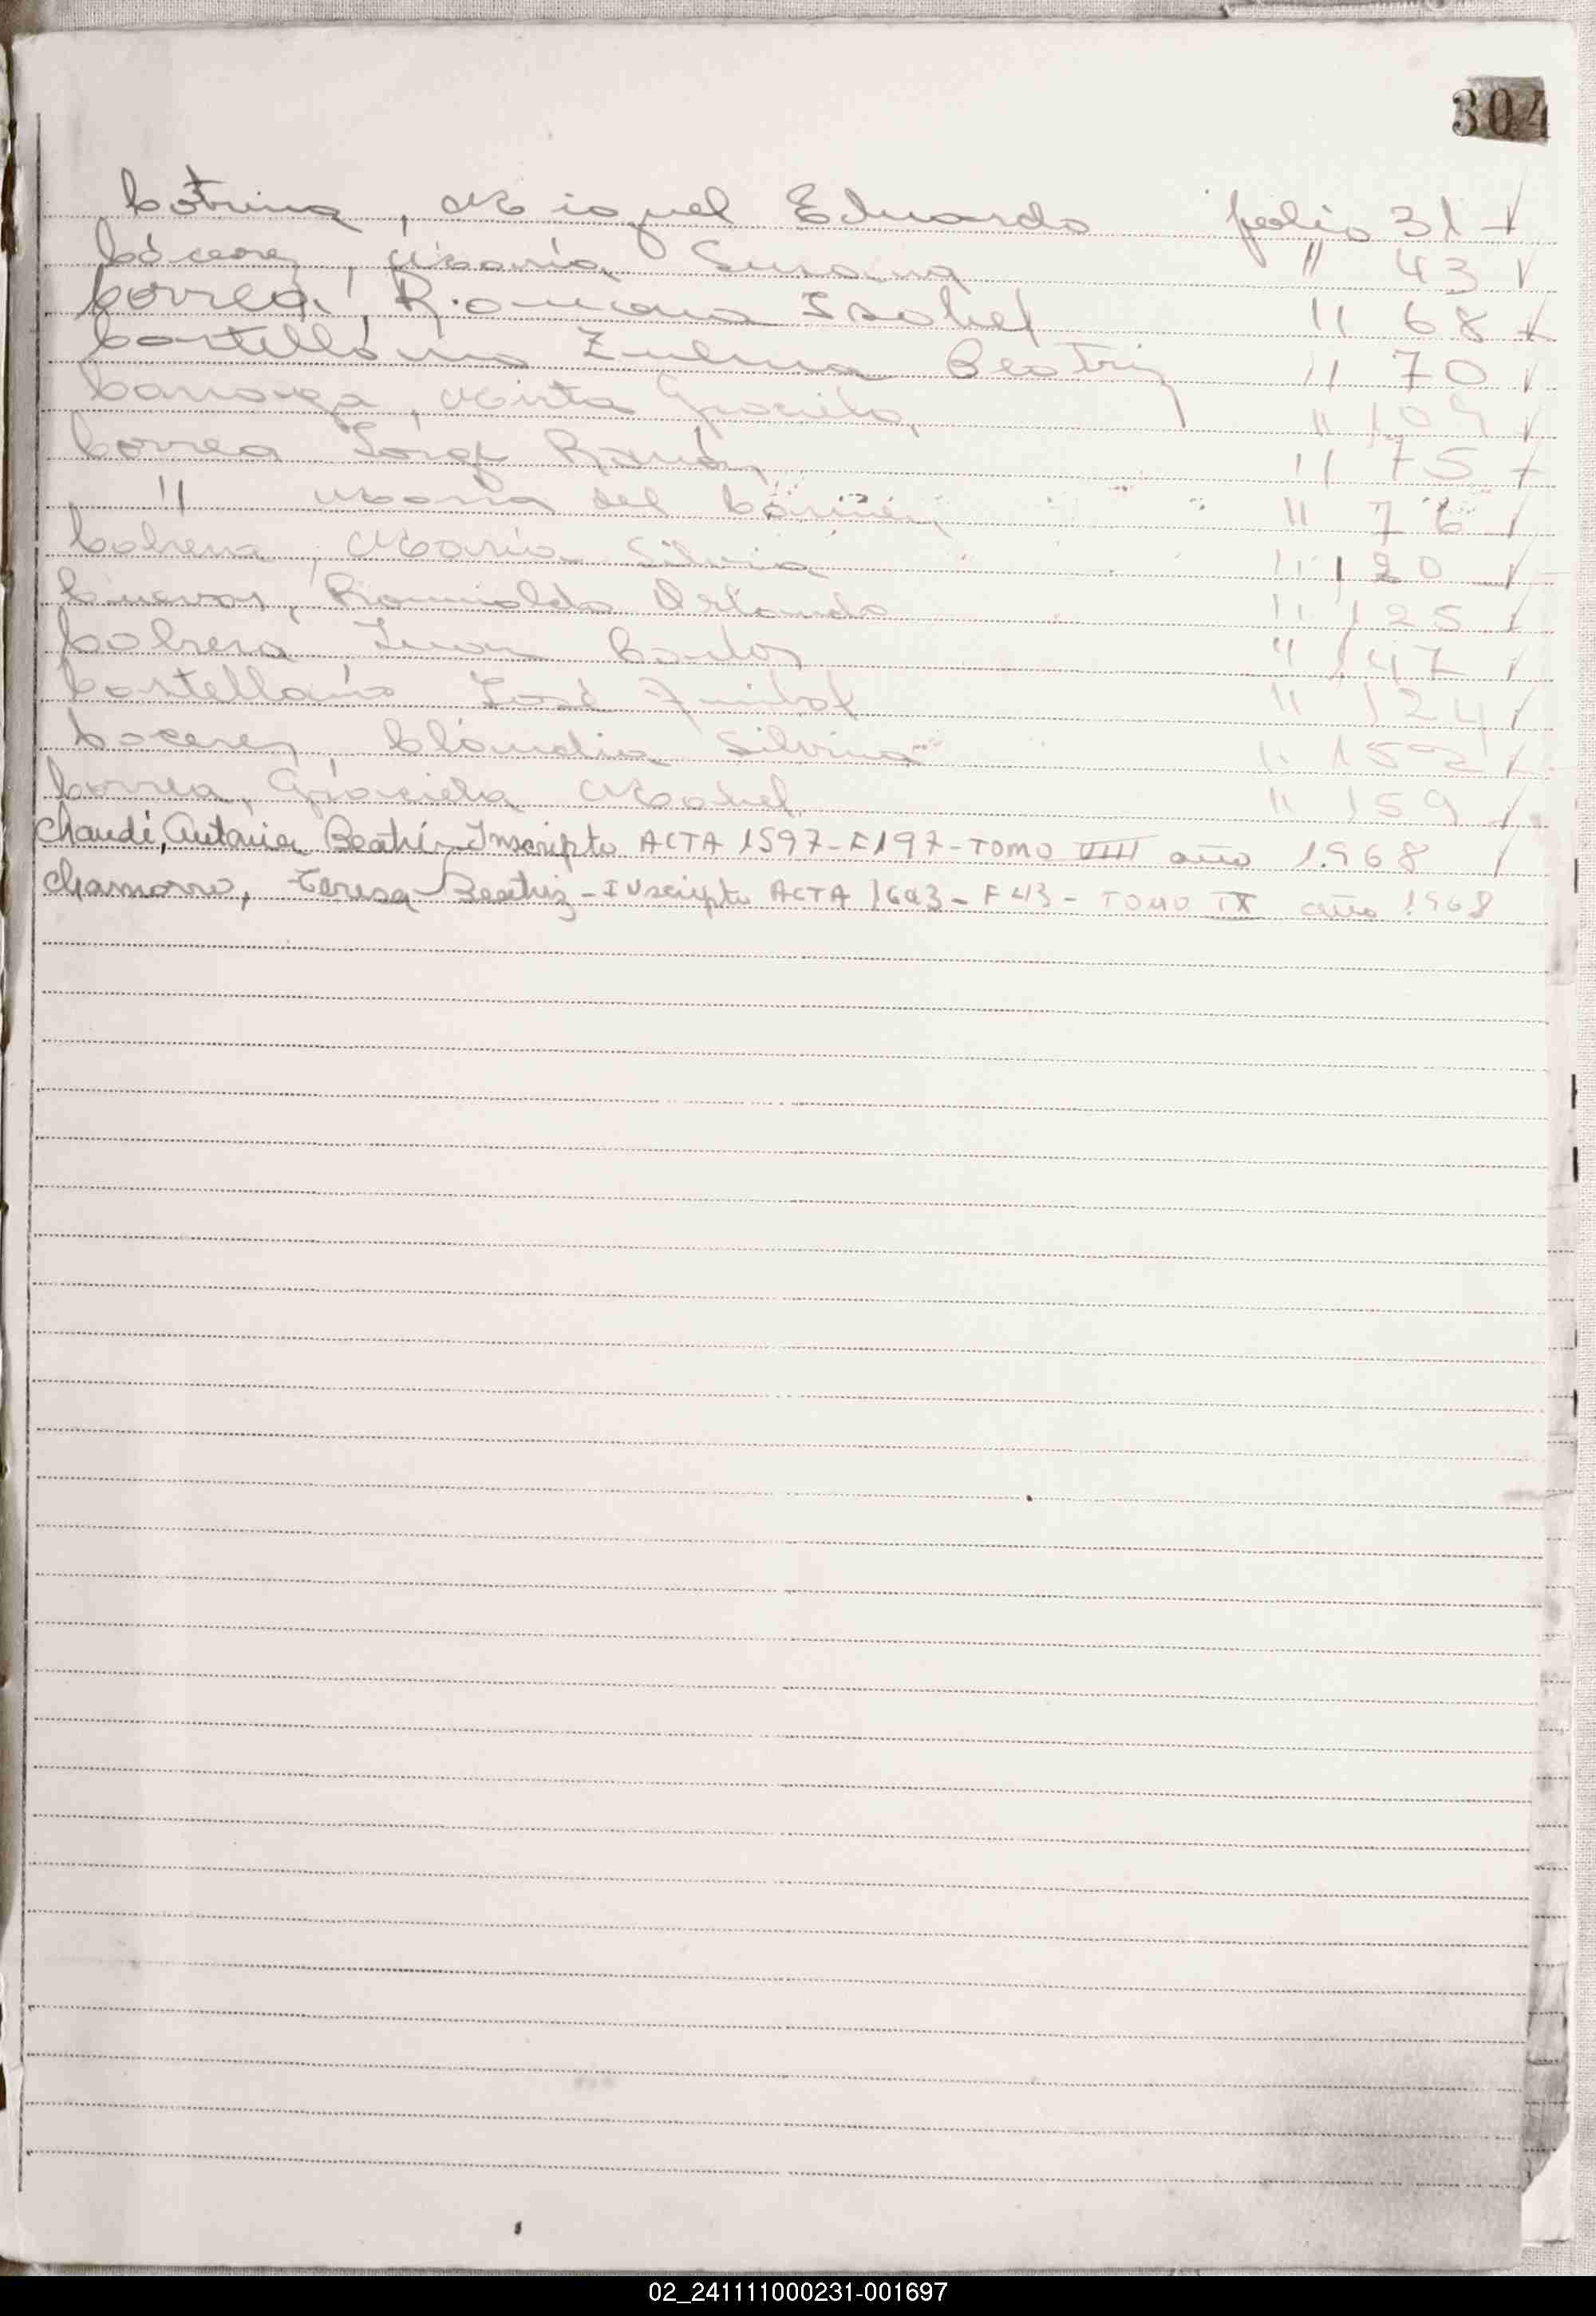 304
Cotrina, Miguel Eduardo folio 31
Cáceres, María Susana " 43
Correa, Romana Isabel " 68
Castelláno Zulma Beatriz " 70
Mirta Graciela " 109
Correa Jorge Ramón " 75
" María del Cármen " 76
Cabrera, María Silvia " 120
Cuevas, Romualdo Orlando " 125
Cabrera Juan Carlos " 147
Castellano José " 124
Caceres, Cláudia Silvina " 152
Correa, Graciela Mabel " 159
Chaudi, Antonia Beatriz - Inscripto ACTA 1597 - F197 - TOMO VIIII año 1.968
Chamorro, Teresa Beatriz - Inscripto ACTA 1643 - F 43 - TOMO IX año 1968
02_241111000231-001697